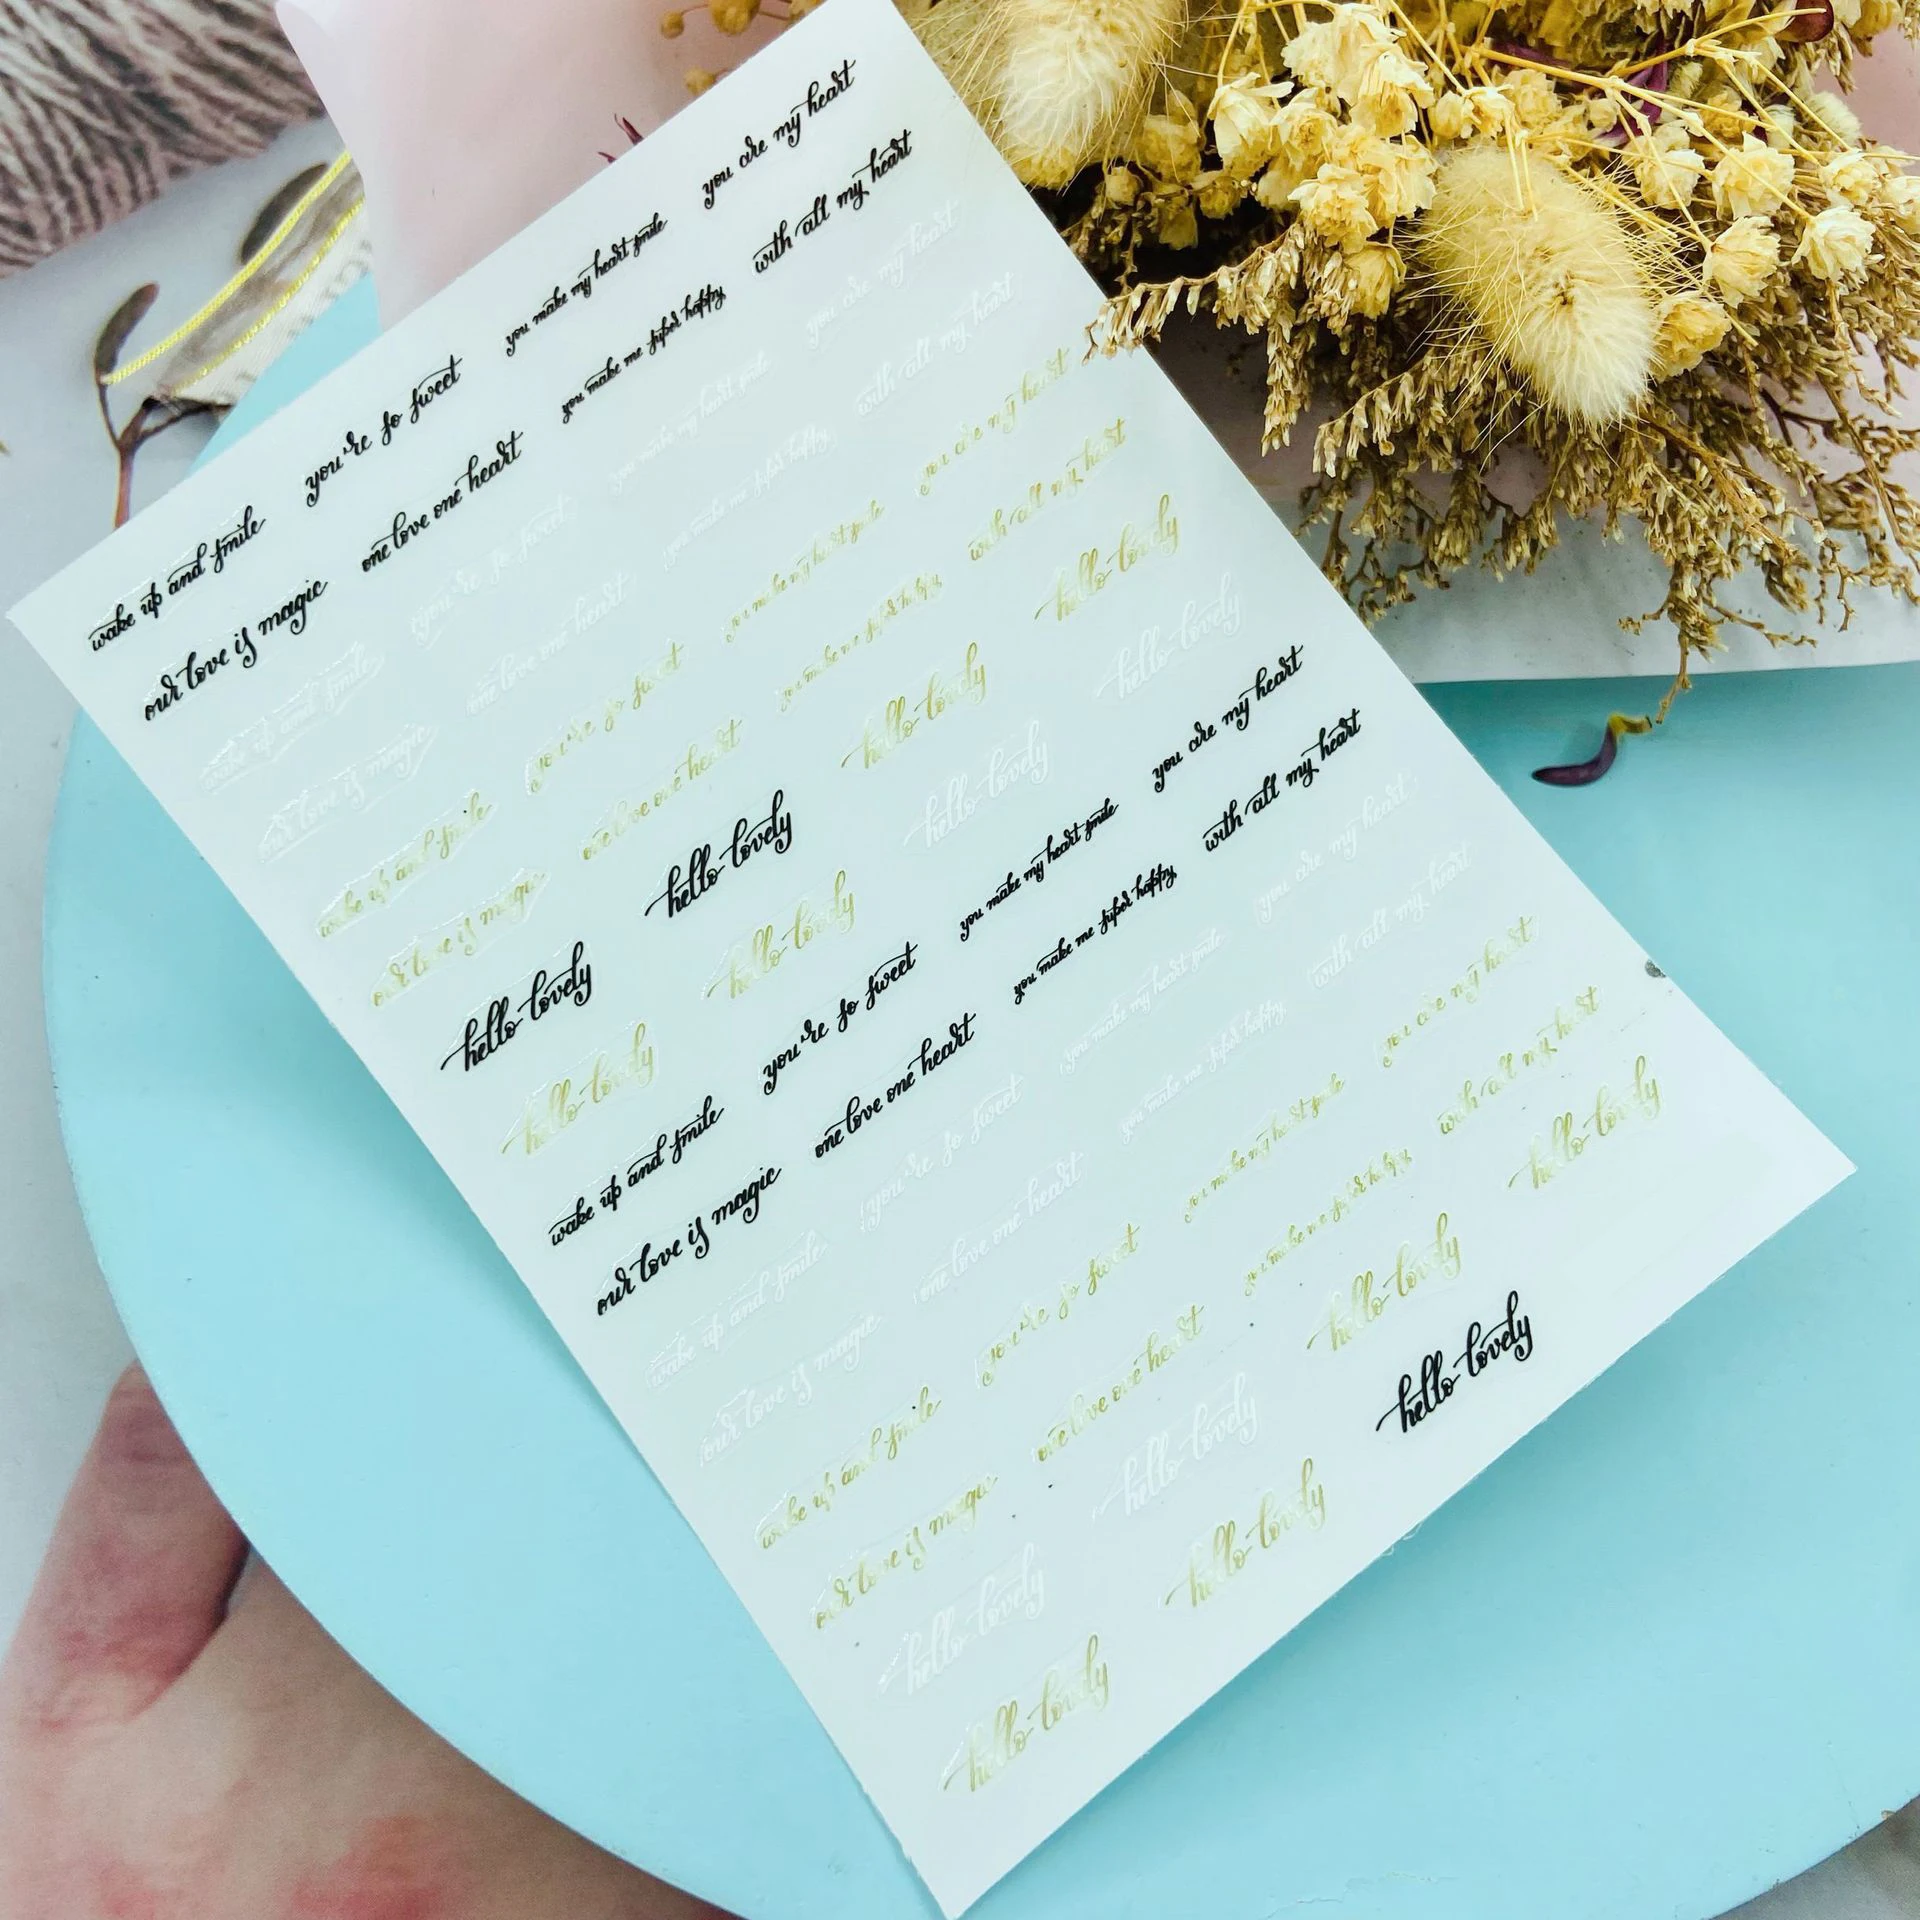 wake up and smile you're so sweet you make my heart smile you are my heart
our love is magic one love one heart you make me super happy with all my heart
wake up and smile you're so sweet you make my heart smile you are my heart
our love is magic one love one heart you make me super happy with all my heart
wake up and smile you're so sweet you make my heart smile you are my heart
our love is magic one love one heart you make me super happy with all my heart
hello lovely hello lovely hello lovely hello lovely
hello lovely hello lovely hello lovely hello lovely
wake up and smile you're so sweet you make my heart smile you are my heart
our love is magic one love one heart you make me super happy with all my heart
wake up and smile you're so sweet you make my heart smile you are my heart
our love is magic one love one heart you make me super happy with all my heart
wake up and smile you're so sweet you make my heart smile you are my heart
our love is magic one love one heart you make me super happy with all my heart
hello lovely hello lovely hello lovely hello lovely
hello lovely hello lovely hello lovely